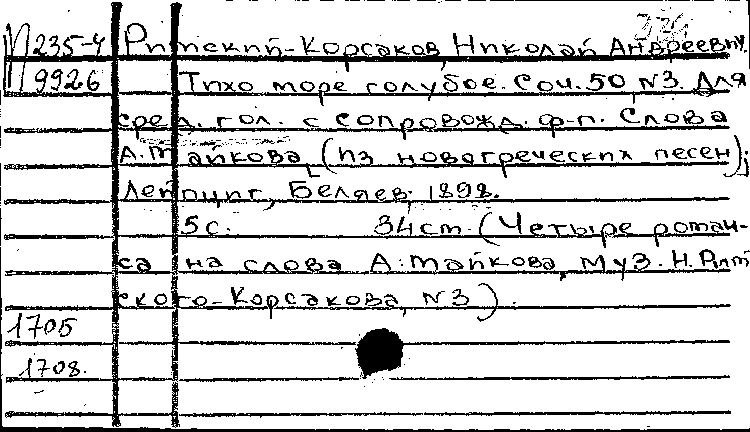 П 235-4 Римский-Корсаков, Николай Андреевич.
992б Тихо море голубое. Соч. 50, №3. Для
сред. гол. с сопровожд. ф-п. Слова
А. Майкова, (из новогреческих песен);
Лейпциг, Беляев, 1898.
5 с. 34 см. (Четыре роман-
са на слова А. Майкова, муз. Н. Рим
ского-Корсакова, №3).
1705
1708.